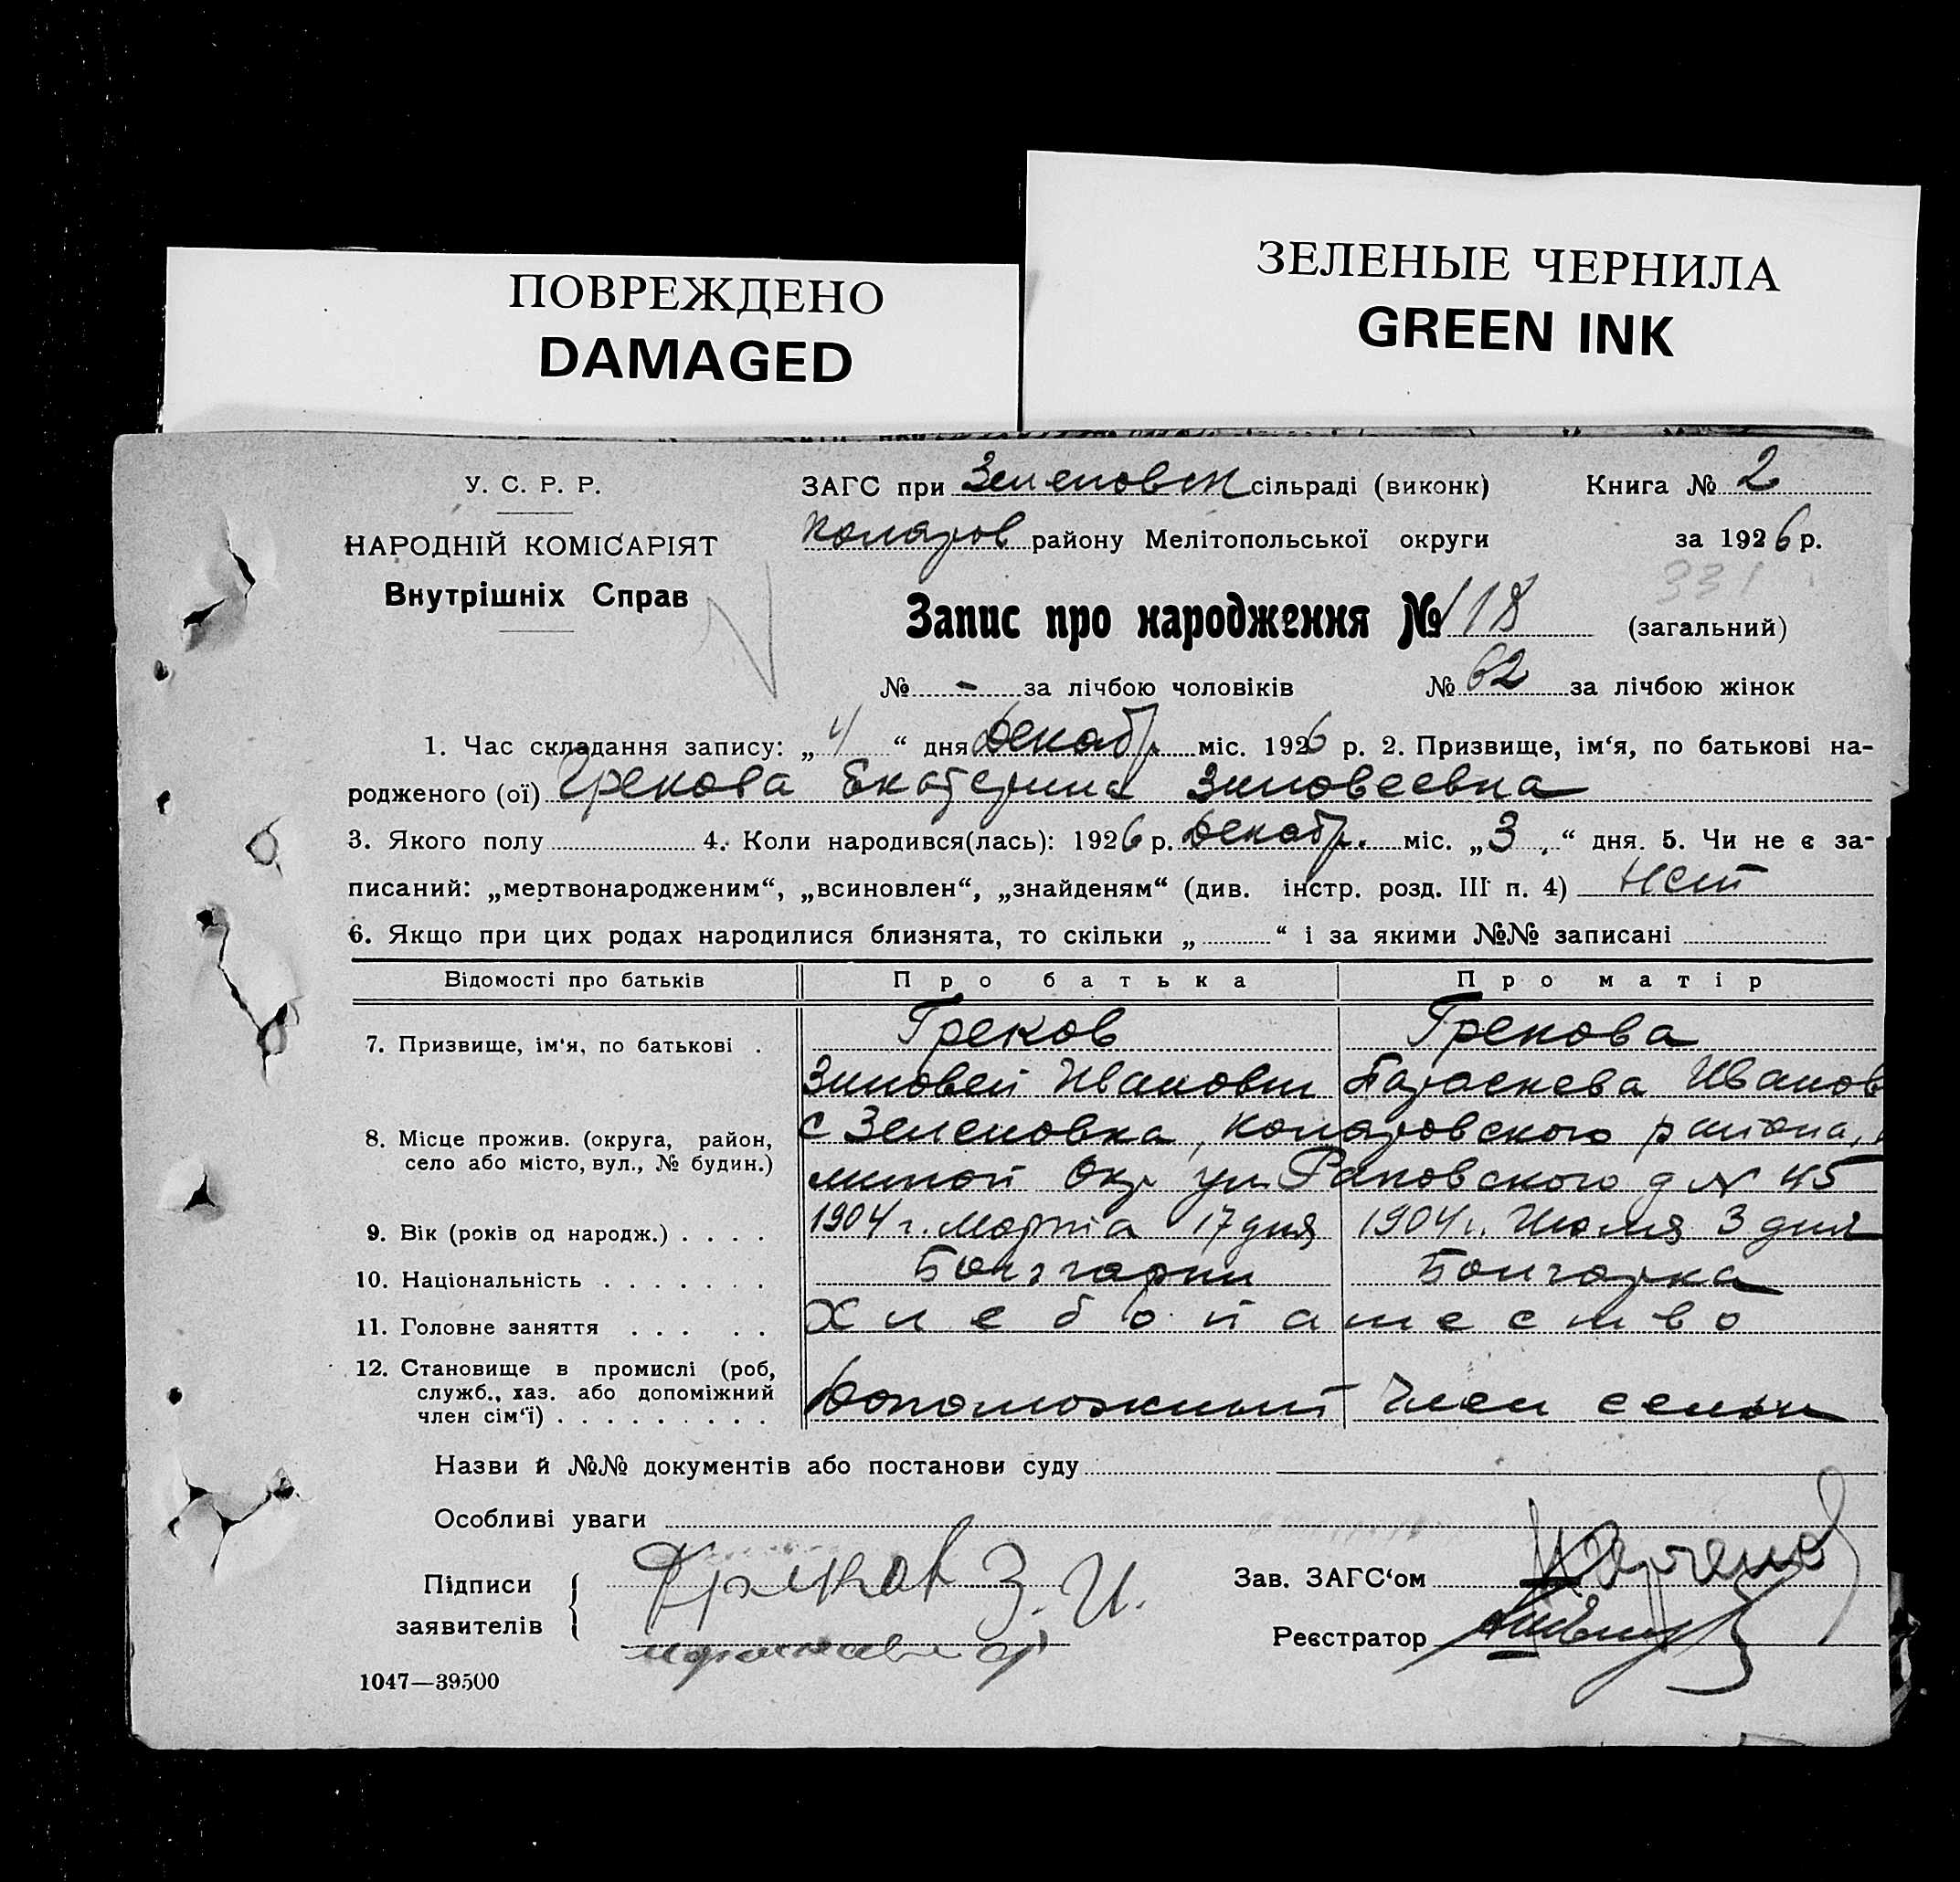 ПОВРЕЖДЕНО
DAMAGED
ЗЕЛЕНЫЕ ЧЕРНИЛА
GREEN INK
У. С. Р. Р.
НАРОДНІЙ КОМІСАРІЯТ
Внутрішніх Справ
ЗАГС при Зеленовск сільраді (виконк) Книга № 2
Коларов району Мелітопольської округи за 1926 р.
331
Запис про народження № 118 (загальний)
№ - за лічбою чоловіків № 62 за лічбою жінок
1. Час складання запису: „ 4 “ дня Декабр. міс. 1926 р. 2. Призвище, ім‘я, по батькові на-
родженого (ої) Грекова Екатерина Зиновеевна
3. Якого полу 4. Коли народився(лась): 1926 р. Декабр. міс. „ 3 “ дня. 5. Чи не є за-
писаний: „мертвонародженим“, „всиновлен“, „знайденям“ (див. інстр. розд. III п. 4) Нет
6. Якщо при цих родах народилися близнята, то скільки „ “ і за якими №№ записані
Відомості про батьків Про батька Про матір
7. Призвище, ім‘я, по батькові . Греков Грекова
Зиновей Иванович Параскева Иванов
8. Місце прожив. (округа, район, с Зеленовка, Коларовского района,
село або місто, вул., № будин.) литоп Окр ул. Раковского д № 45
9. Вік (років од народж.) . . . . 1904 г. Марта 17 дня 1904 г. Июля 3 дня
10. Національність . . . . . . . Болггарин Болгарка
11. Головне заняття . . . . . Хлебопашество
12. Становище в промислі (роб,
служб., хаз. або допоміжний Допоможный Член семьи
член сім‘ї) . . . . . . . . .
Назви й №№ документів або постанови суду
Особливі уваги
Підписи Греков З. И. Зав. ЗАГС‘ом
заявителів Реєстратор
1047—39500